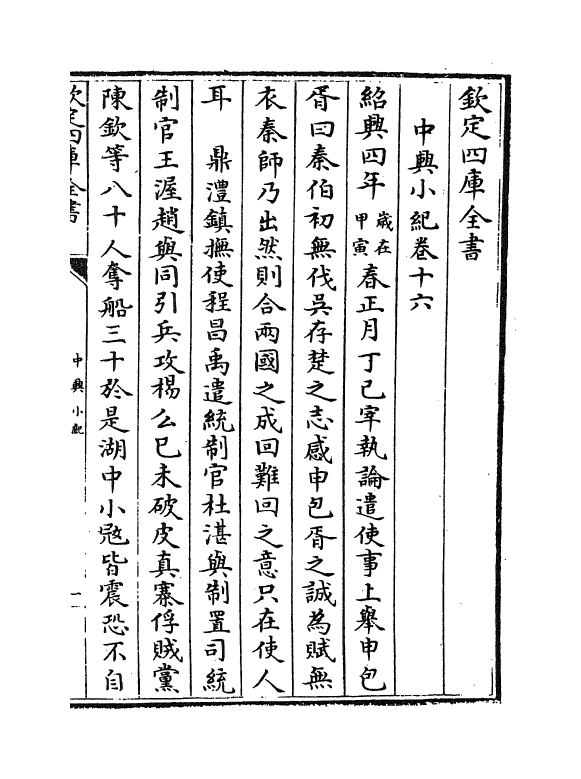 欽定四庫全書
中興小紀卷十六
紹興四年歲在甲寅春正月丁巳宰執論遣使事上舉申包
胥曰秦伯初無伐吳存楚之志感申包胥之誠為賦無
衣秦師乃出然則合兩國之成回難回之意只在使人
耳 鼎澧鎮撫使程昌禹遣統制官杜湛與制置司統
制官王渥趙與同引兵攻楊么巳未破皮真寨俘賊黨
陳欽等八十人奪船三十於是湖中小㓂皆震恐不自
欽定四庫全書
中興小紀
一